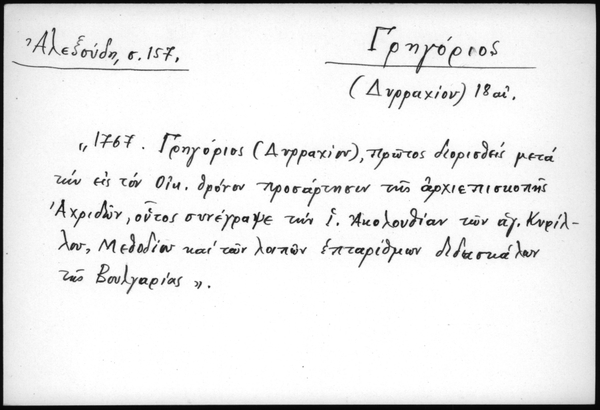 Ἀλεξούδη, σ. 157.
Γρηγόριος
(Δυρραχίου) 18 αἰ.
„1767. Γρηγόριος (Δυρραχίου), πρῶτος διορισθείς μετά
τήν εἰς τόν Οἰκ. θρόνον προσάρτησιν τῆς ἀρχιεπισκοπῆς
Ἀχριδῶν, οὗτος συνέγραψε τήν ἱ. Ἀκολουθίαν τῶν ἁγ. Κυρίλ-
λου, Μεθοδίου καί τῶν λοιπῶν ἑπταρίθμων διδασκάλων
τῆς Βουλγαρίας".